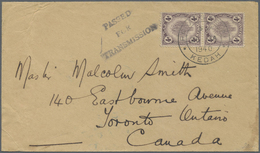 PASSED
FOR
TRANSMISSION
1940
KEDAH
Master Malcolm Smith
140 Eastbourne Avenue
Toronto Ontario
Canada